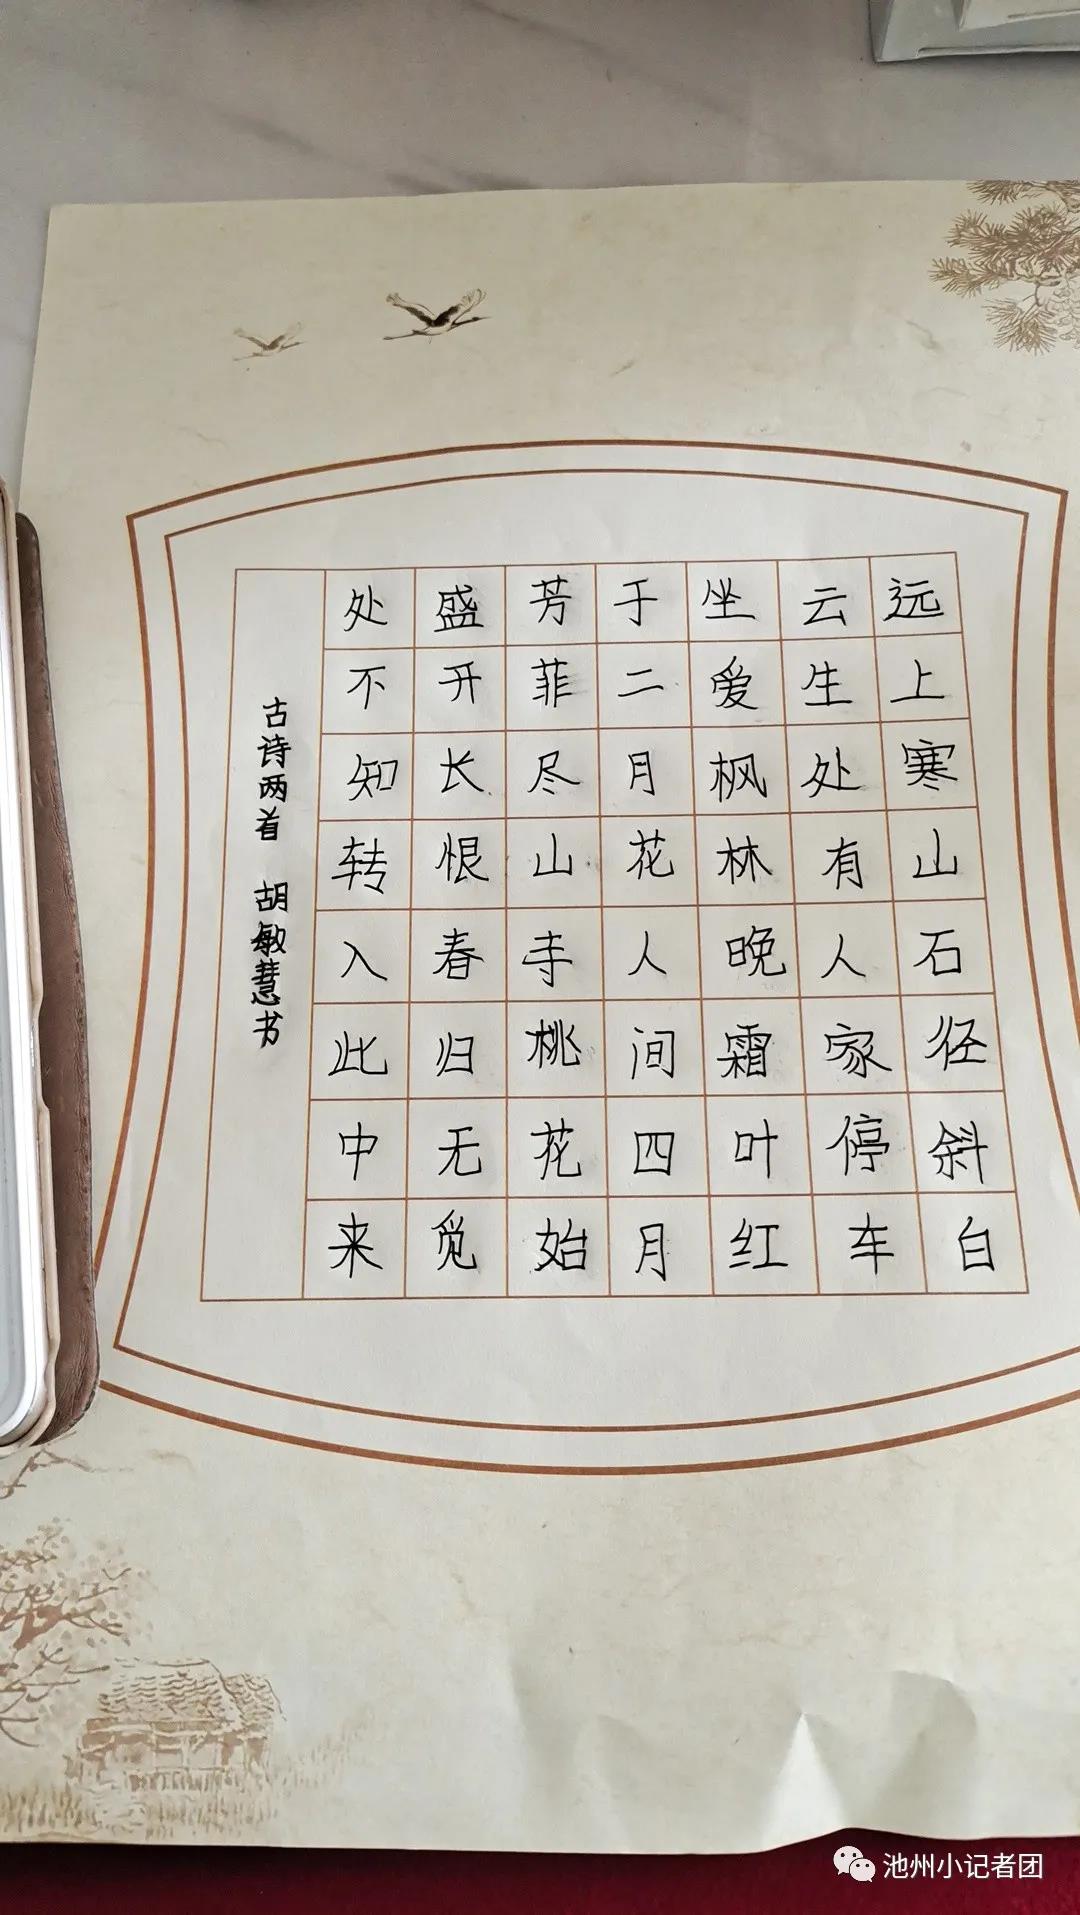 远上寒山石径斜白
云生处有人家停车
坐爱枫林晚霜叶红
于二月花人间四月
芳菲尽山寺桃花始
盛开长恨春归无觅
处不知转入此中来
古诗两首 胡敏慧书
池州小记者团